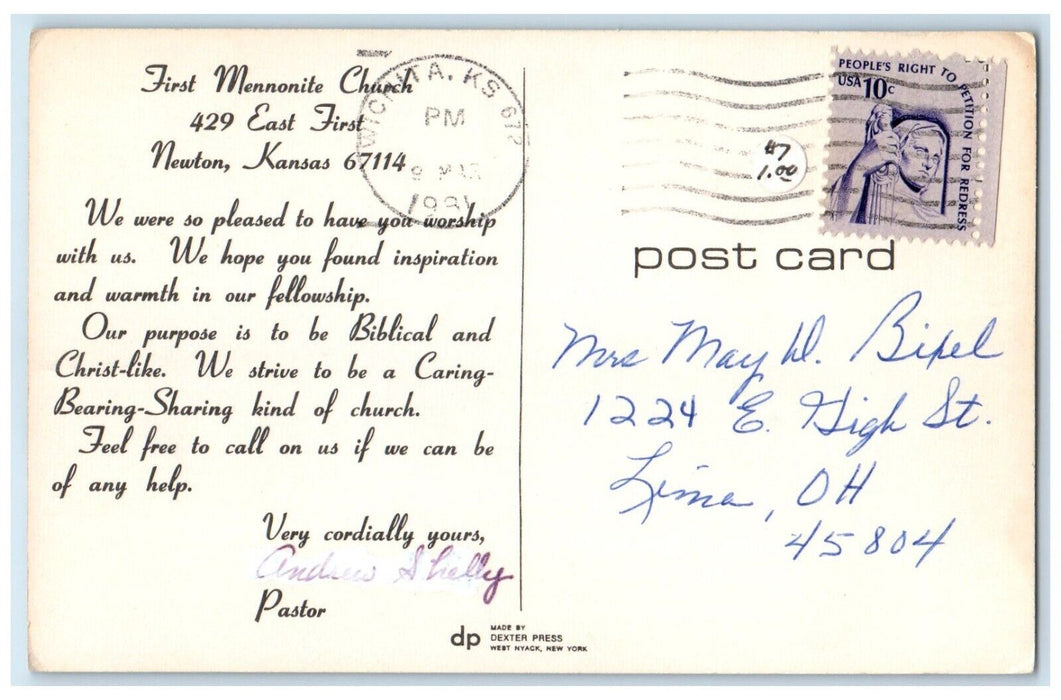 First Mennonite Church
429 East First
Newton, Kansas 67114
We were so pleased to have you worship
with us. We hope you found inspiration
and warmth in our fellowship.
Our purpose is to be Biblical and
Christ-like. We strive to be a Caring-
Bearing-Sharing kind of church.
Feel free to call on us if we can be
of any help.
Very cordially yours,
Andrew Shelly
Pastor
WICHITA, KS
PM
PEOPLE'S RIGHT TO PETITION FOR REDRESS
USA 10c
#7
1.00
post card
Mrs May W. Bixel
1224 E. High St.
Lima, OH
45804
dp
MADE BY
DEXTER PRESS
WEST NYACK, NEW YORK